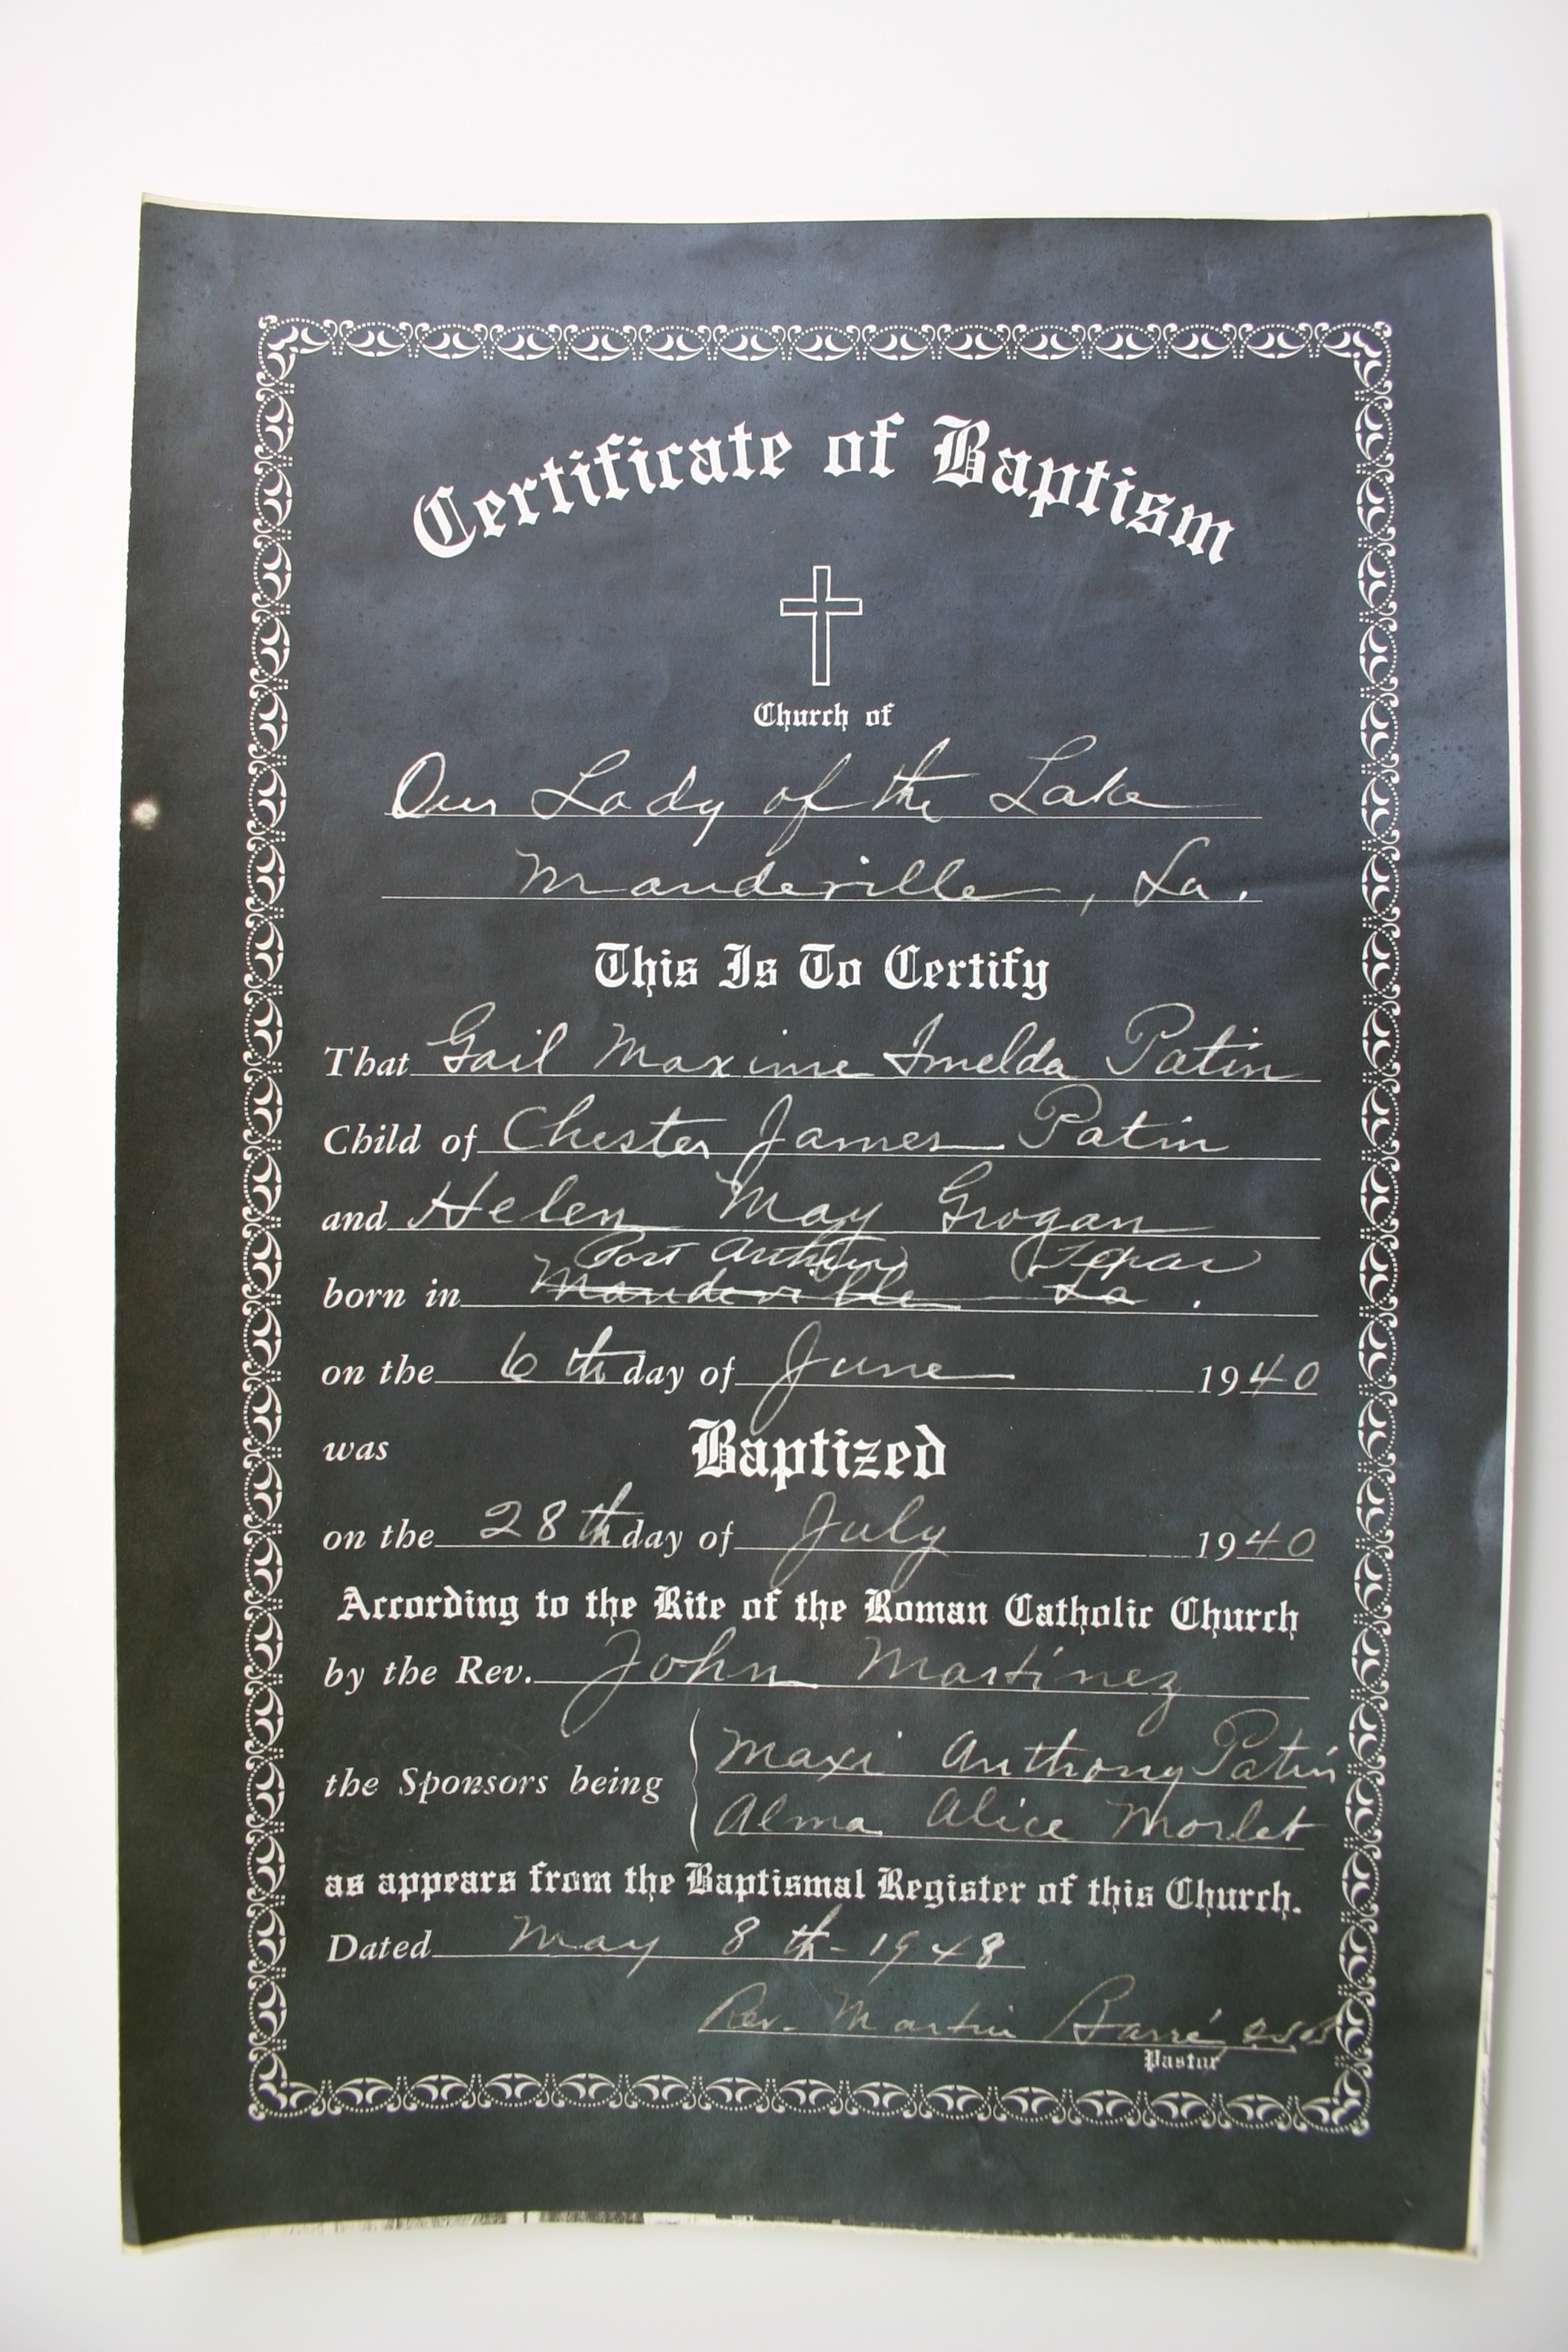 Certificate of Baptism
Church of
Our Lady of the Lake
Mandeville, La.
This Is To Certify
That Gail Maxime Imelda Patin
Child of Chester James Patin
and Helen May Grogan
Port Arthur Texas
born in Mandeville La.
on the 6th day of June 1940
was Baptized
on the 28th day of July 1940
According to the Rite of the Roman Catholic Church
by the Rev. John Martinez
the Sponsors being Maxi Anthony Patin
Alma Alice Morlet
as appears from the Baptismal Register of this Church.
Dated May 8th-1948
Rev. Martin Barré OSB
Pastor